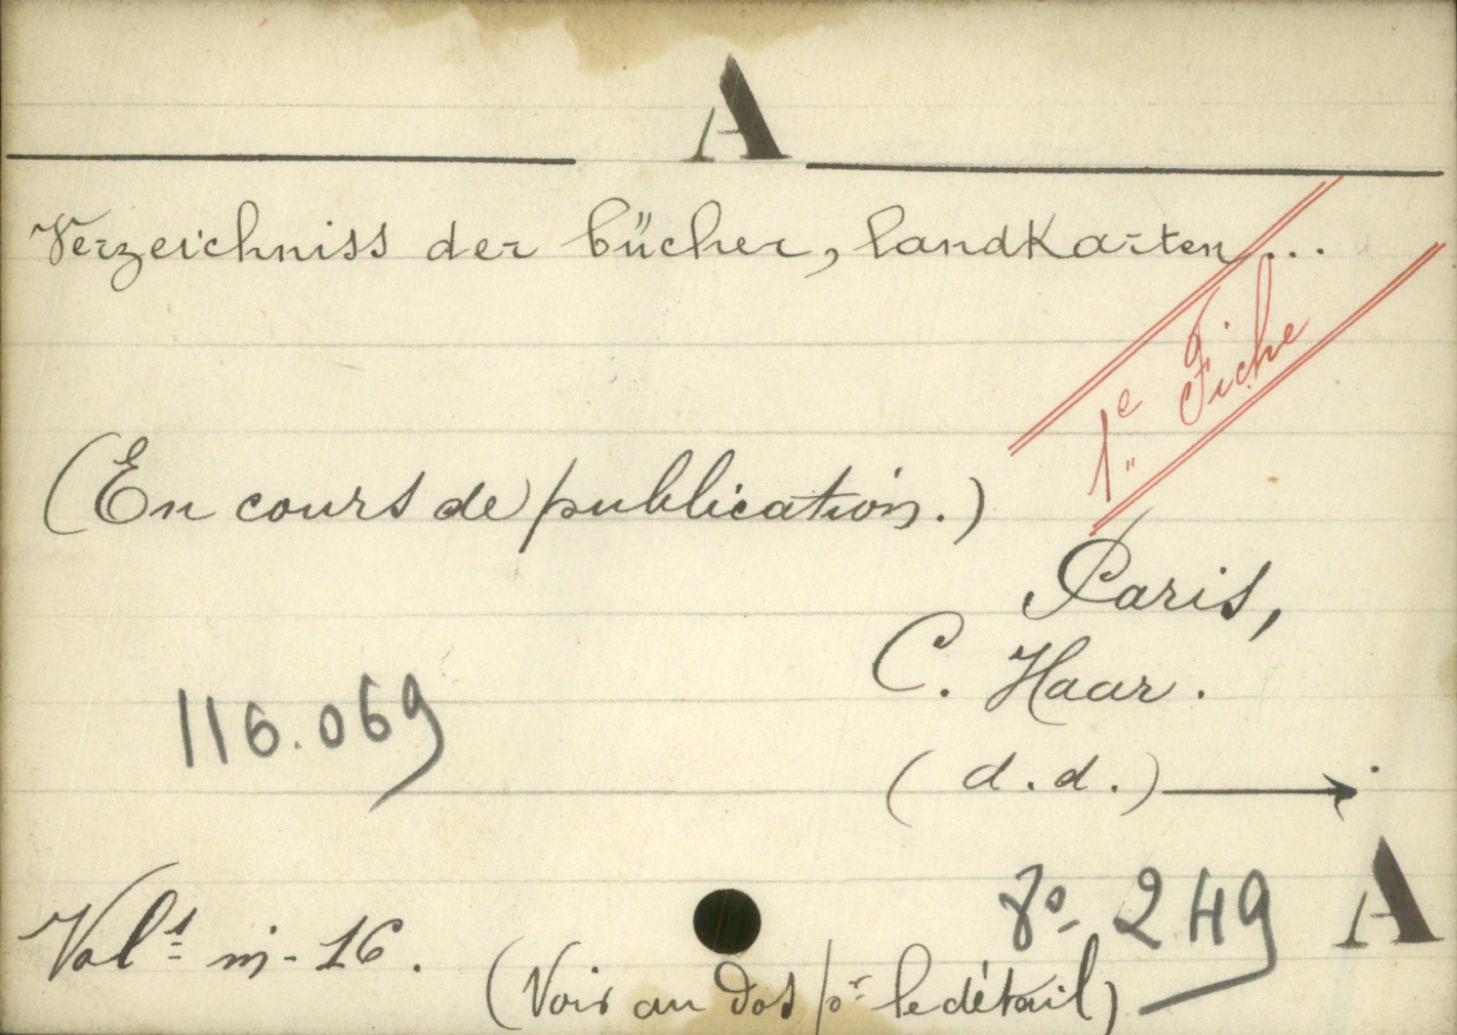 A
Verzeichniss der bücher, landkarten...
1e Fiche
(En cours de publication.)
Paris,
C. Haar.
116.069
(d.d.)
8o 249 A
Vols in-16.
(Voir au dos pr le détail)